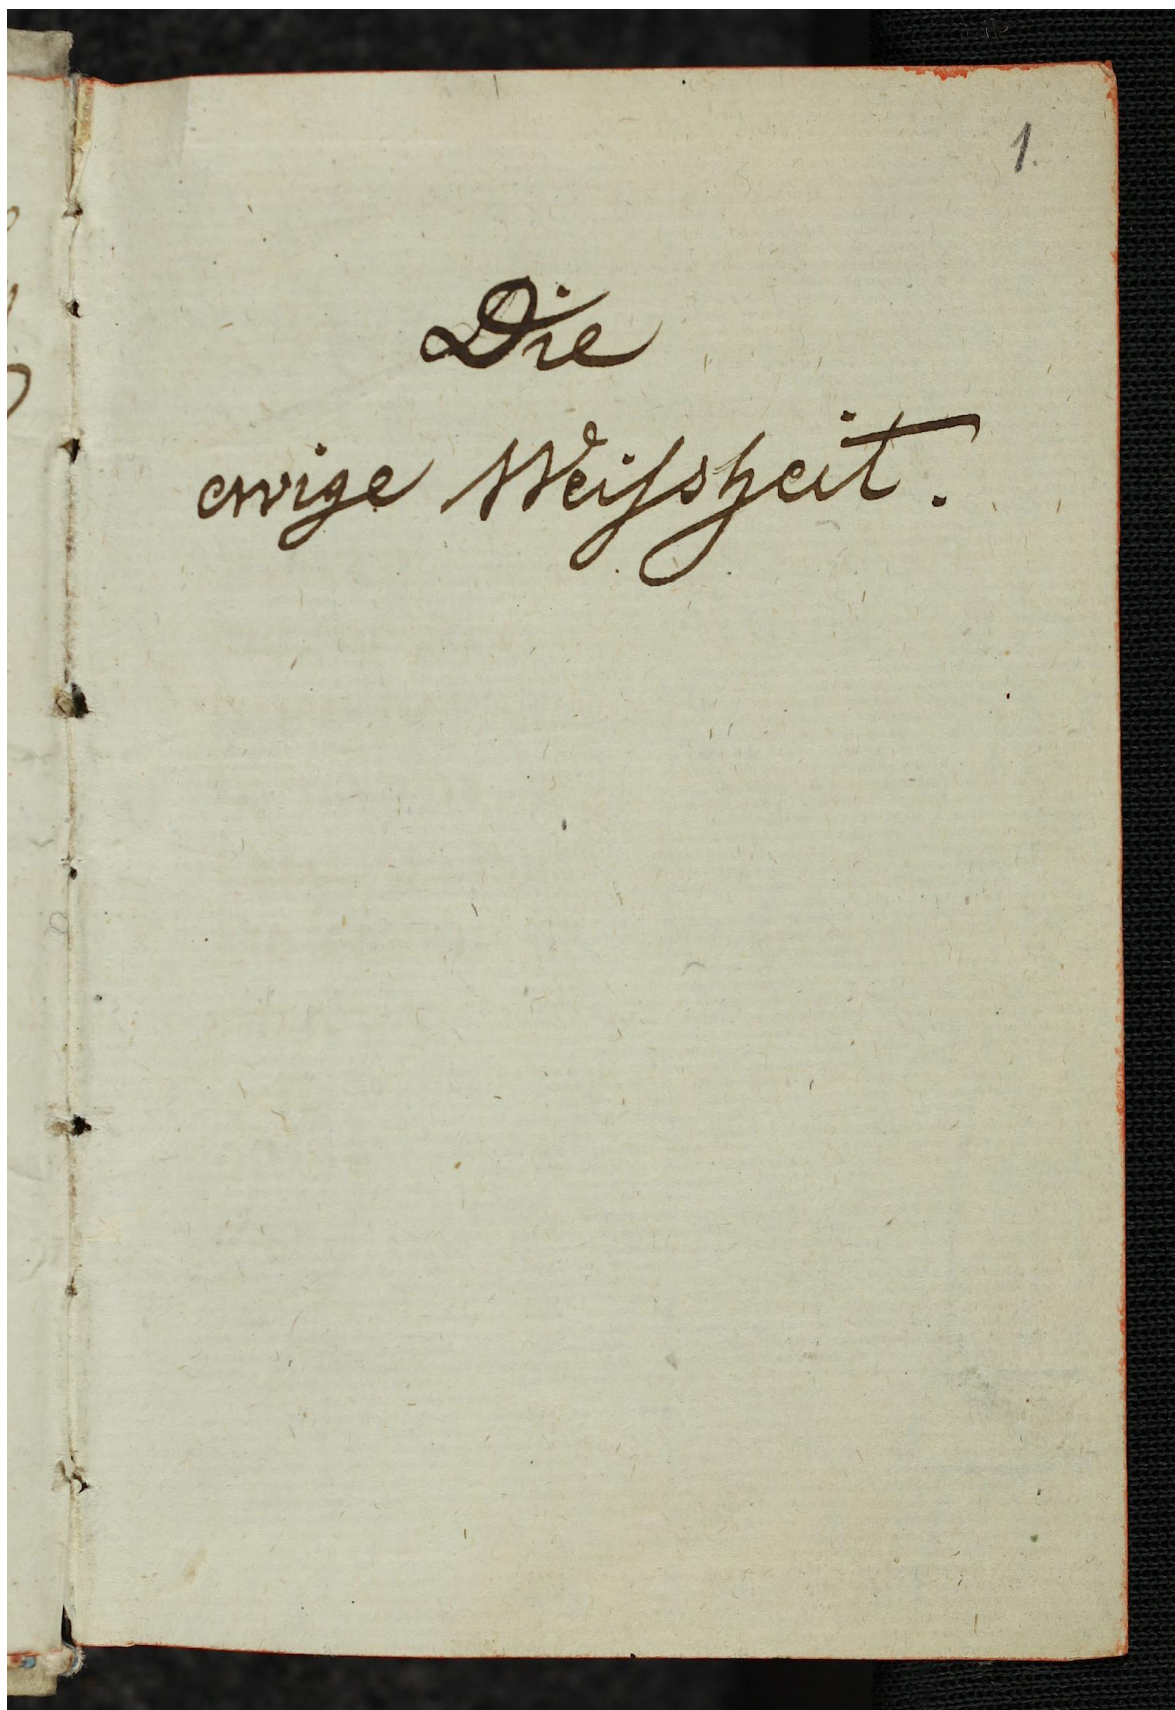 1.
Die
ewige Weisheit.